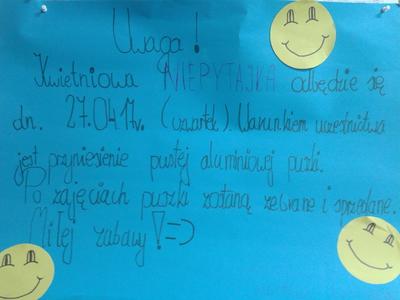 Uwaga!
Kwietniowa NIEPYTAJKA odbędzie się
dn. 27.04.17r. (czwartek). Warunkiem uczestnictwa
jest przyniesienie pustej aluminiowej puszki.
Po zajęciach puszki zostaną zebrane i sprzedane.
Miłej zabawy! =)